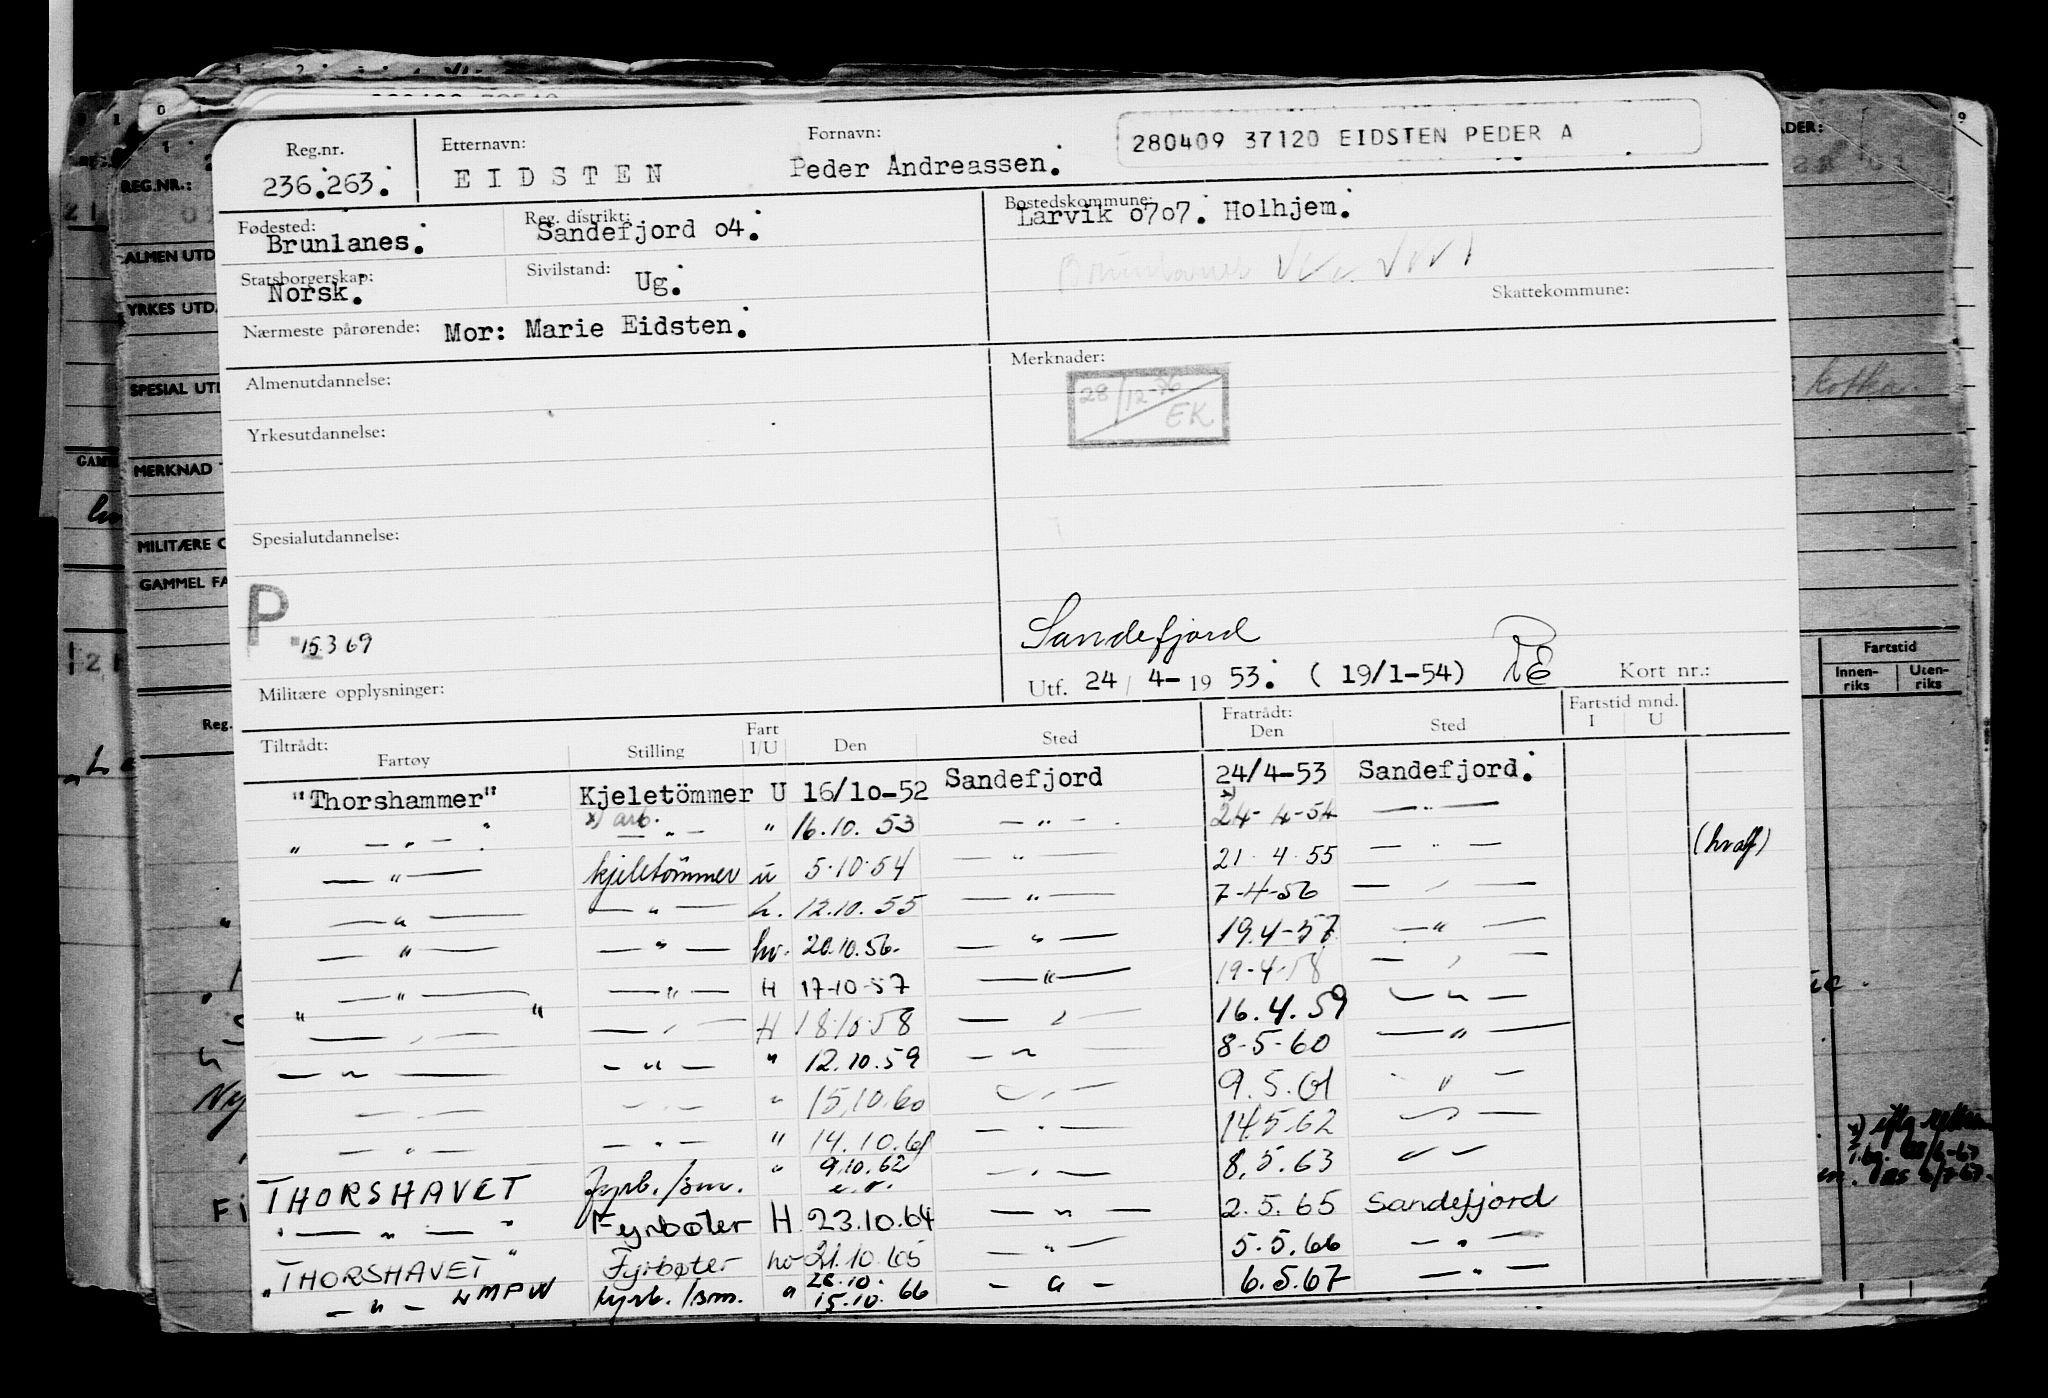 Reg.nr. Etternavn: Fornavn: 280409 37120 EIDSTEN PEDER A
236.263. EIDSTEN Peder Andreassen.
Fødested: Reg. distrikt: Bostedskommune:
Brunlanes. Sandefjord o4. Larvik o7o7. Holhjem.
Statsborgerskap: Sivilstand: Brunlanes
Norsk. Ug. Skattekommune:
Nærmeste pårørende: Mor: Marie Eidsten.
Almenutdannelse: Merknader:
28/12-76
EK
Yrkesutdannelse:
Spesialutdannelse:
P.
15.3 69
Sandefjord
Militære opplysninger: Utf. 24/4-1953. (19/1-54) Kort nr.:
Tiltrådt: Fart Fratrådt: Fartstid mnd.
Fartøy Stilling I/U Den Sted Den Sted I U
"Thorshammer" Kjeletömmer U 16/1o-52 Sandefjord 24/4-53 Sandefjord.
" — " — x) arb. — " — " 16.10. 53 — " — x) 24-4-54 — " —
— " — kjeletömmer u 5.10.54 — " — 21. 4. 55 — " — (hvalf)
— " — — " — h. 12.10. 55 — " — 7-4-56 — " —
— " — — " — hv. 20.10.56. — " — 19.4-57 — " —
— " — — " — H 17-10-57 — " — 19-4-58 — " —
" — " — " — " — H 18.10.58 — " — 16.4.59 — " —
— " — — " — " 12.10.59 — " — 8-5-60 — " —
— " — — " — " 15.10.60 — " — 9.5.61 — " —
— " — — " — " 14.10.61 — " — 14.5.62 — " —
THORSHAVET fyrb./sm. " 9.10.62 — " — 8.5.63 — " —
" — " — " Fyrbøter H 23.10.64 — " — 2.5.65 Sandefjord
"THORSHAVET" Fyrbøter hv 21.10.65 — " — 5.5.66 — " —
— " — LMPW fyrb./sm. " 28.10. 15.10. 66 — " — 6.5.67 — " —
REG.NR.:
ALMEN UTD
YRKES UTD.
SPESIAL UTD
MERKNAD
MILITÆRE
GAMMEL FA
Reg.
Fartstid
Innen-riks Uten-riks